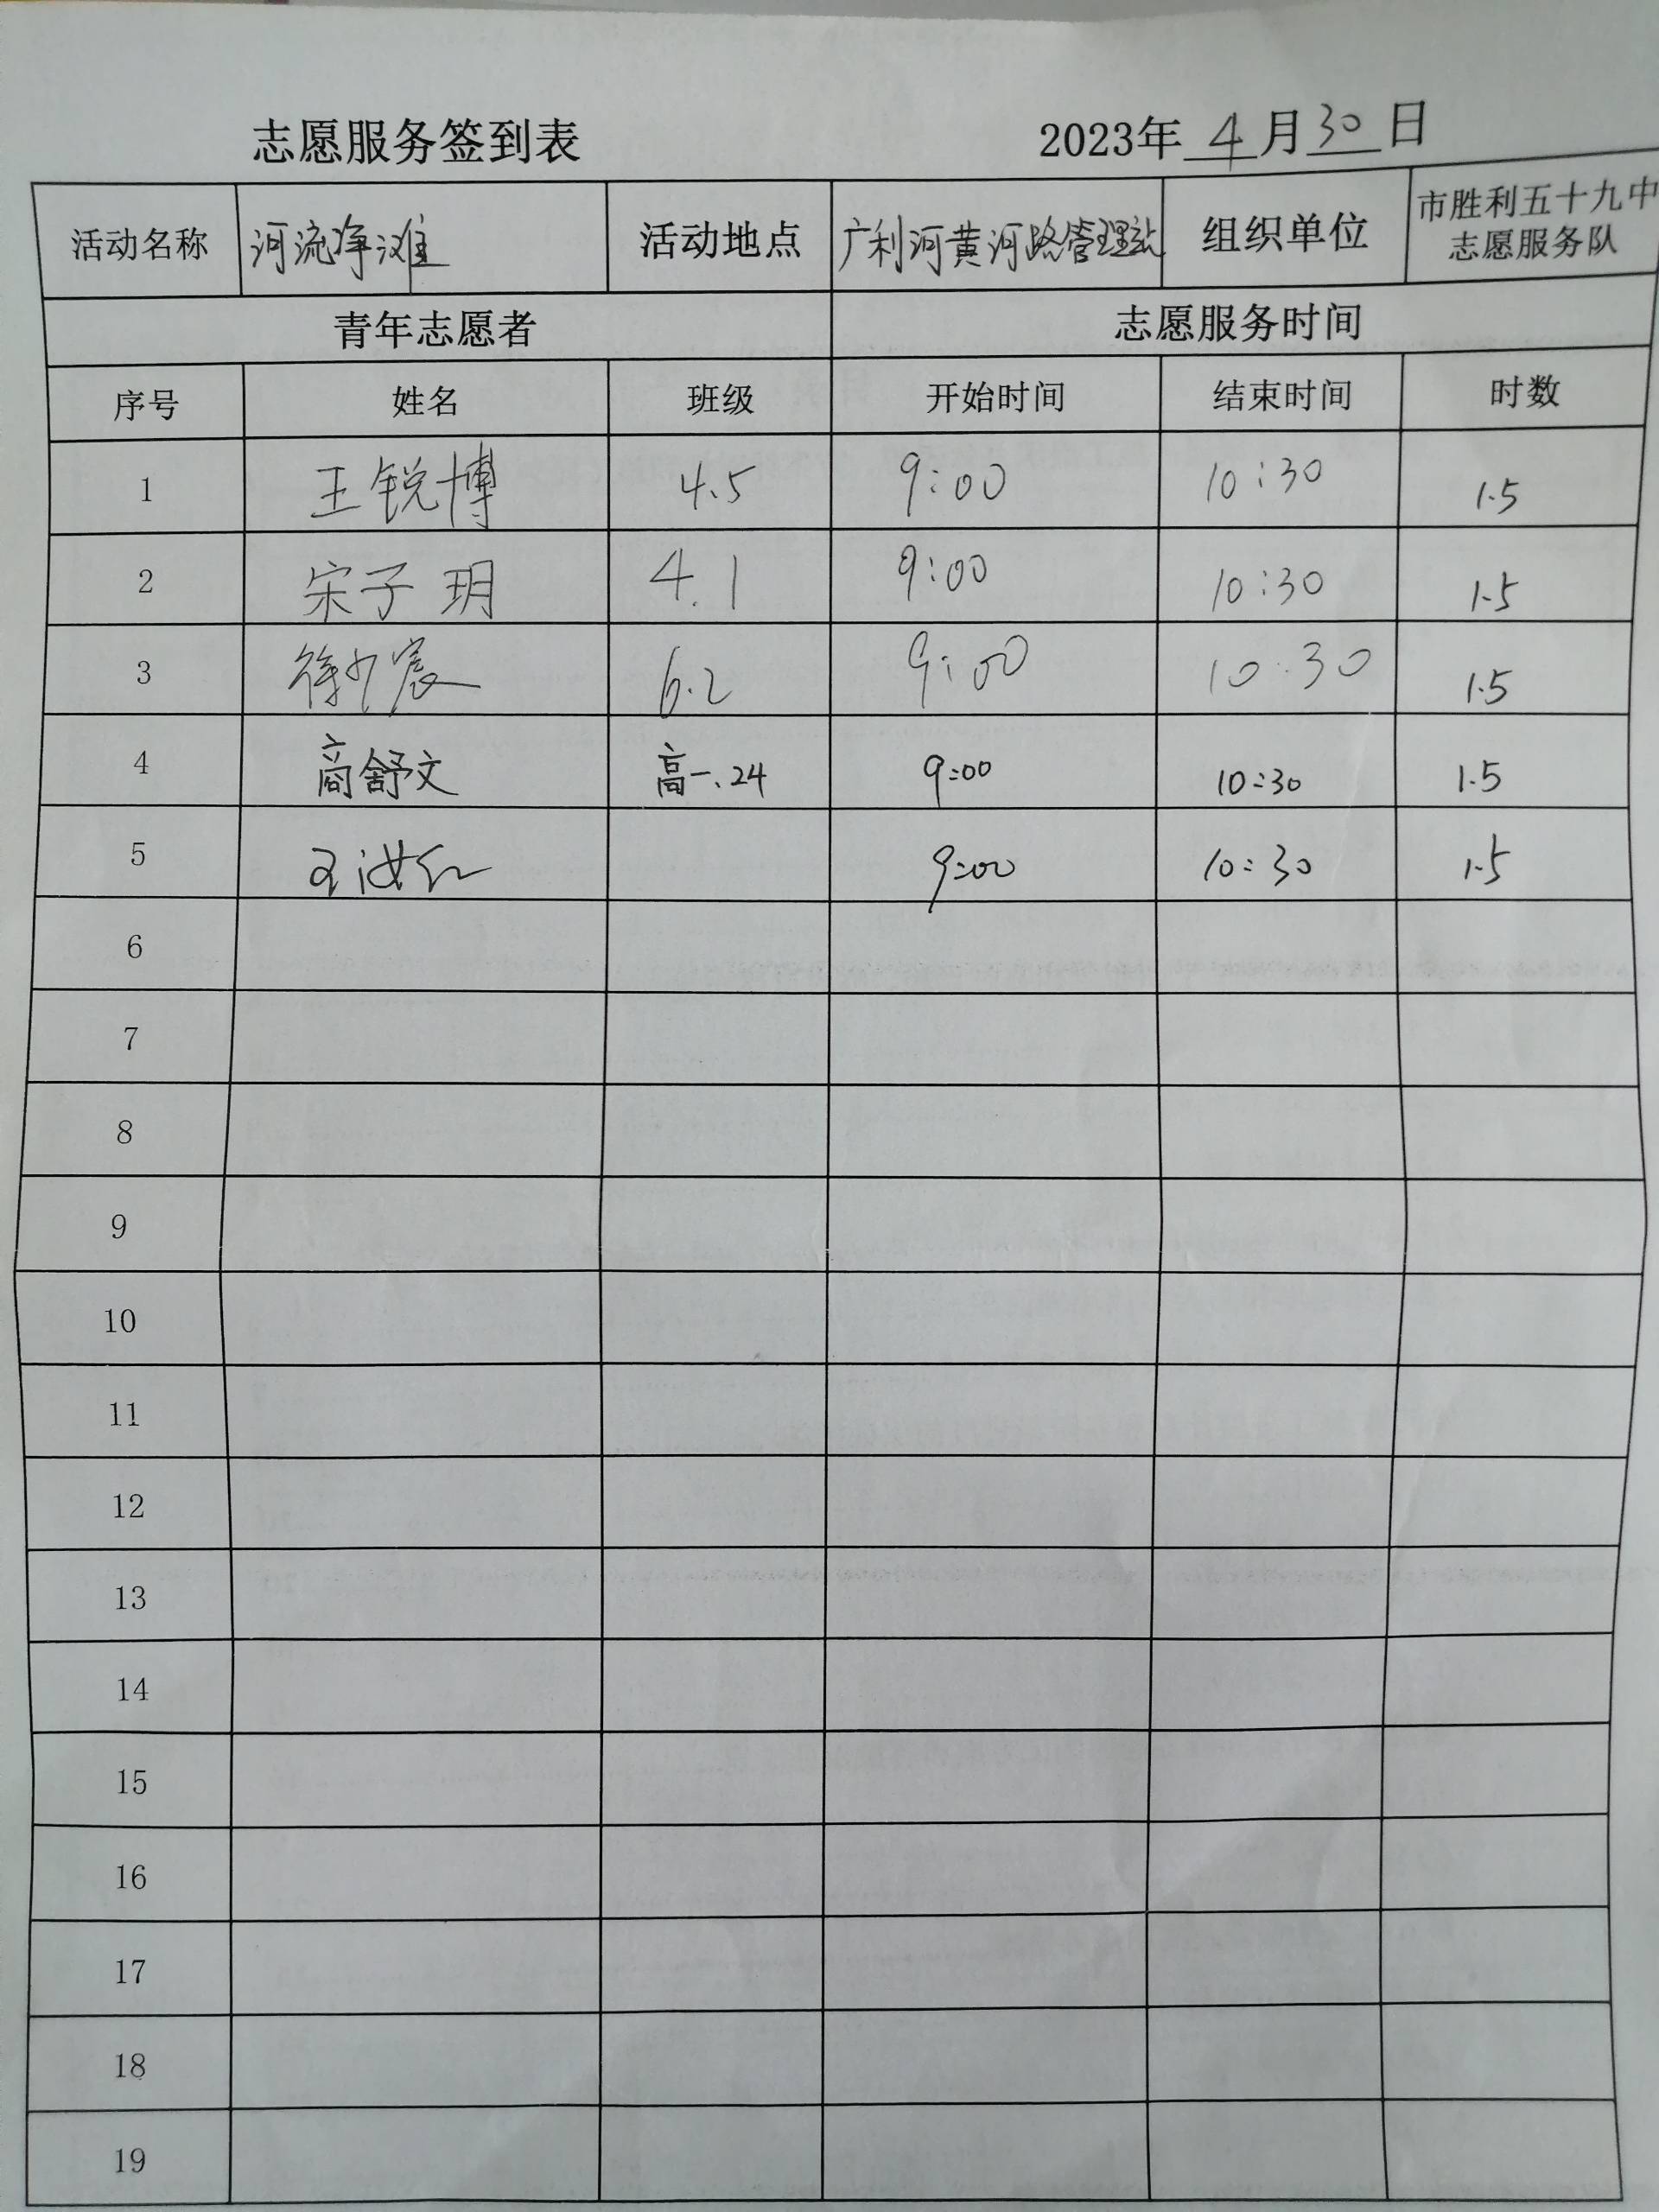 志愿服务签到表 2023年4月30日
活动名称 河流净滩 活动地点 广利河黄河路管理站 组织单位 市胜利五十九中
志愿服务队
青年志愿者 志愿服务时间
序号 姓名 班级 开始时间 结束时间 时数
1 王锐博 4.5 9:00 10:30 1.5
2 宋子玥 4.1 9:00 10:30 1.5
3 徐 宸 6.2 9:00 10:30 1.5
4 商舒文 高一.24 9:00 10:30 1.5
5 王汝红 9:00 10:30 1.5
6
7
8
9
10
11
12
13
14
15
16
17
18
19